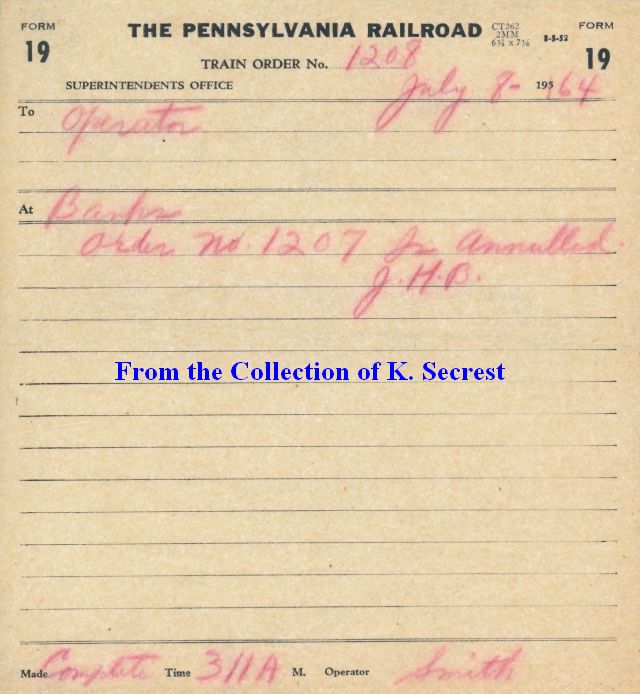 FORM THE PENNSYLVANIA RAILROAD CT262 2MM 6¾ x 7¼ 8-8-52 FORM
19 TRAIN ORDER No. 1208 19
SUPERINTENDENTS OFFICE July 8- 195 64
To Operator
At Banks
Order No. 1207 Is Annulled.
J.H.B.
From the Collection of K. Secrest
Made Complete Time 311A M. Operator Smith